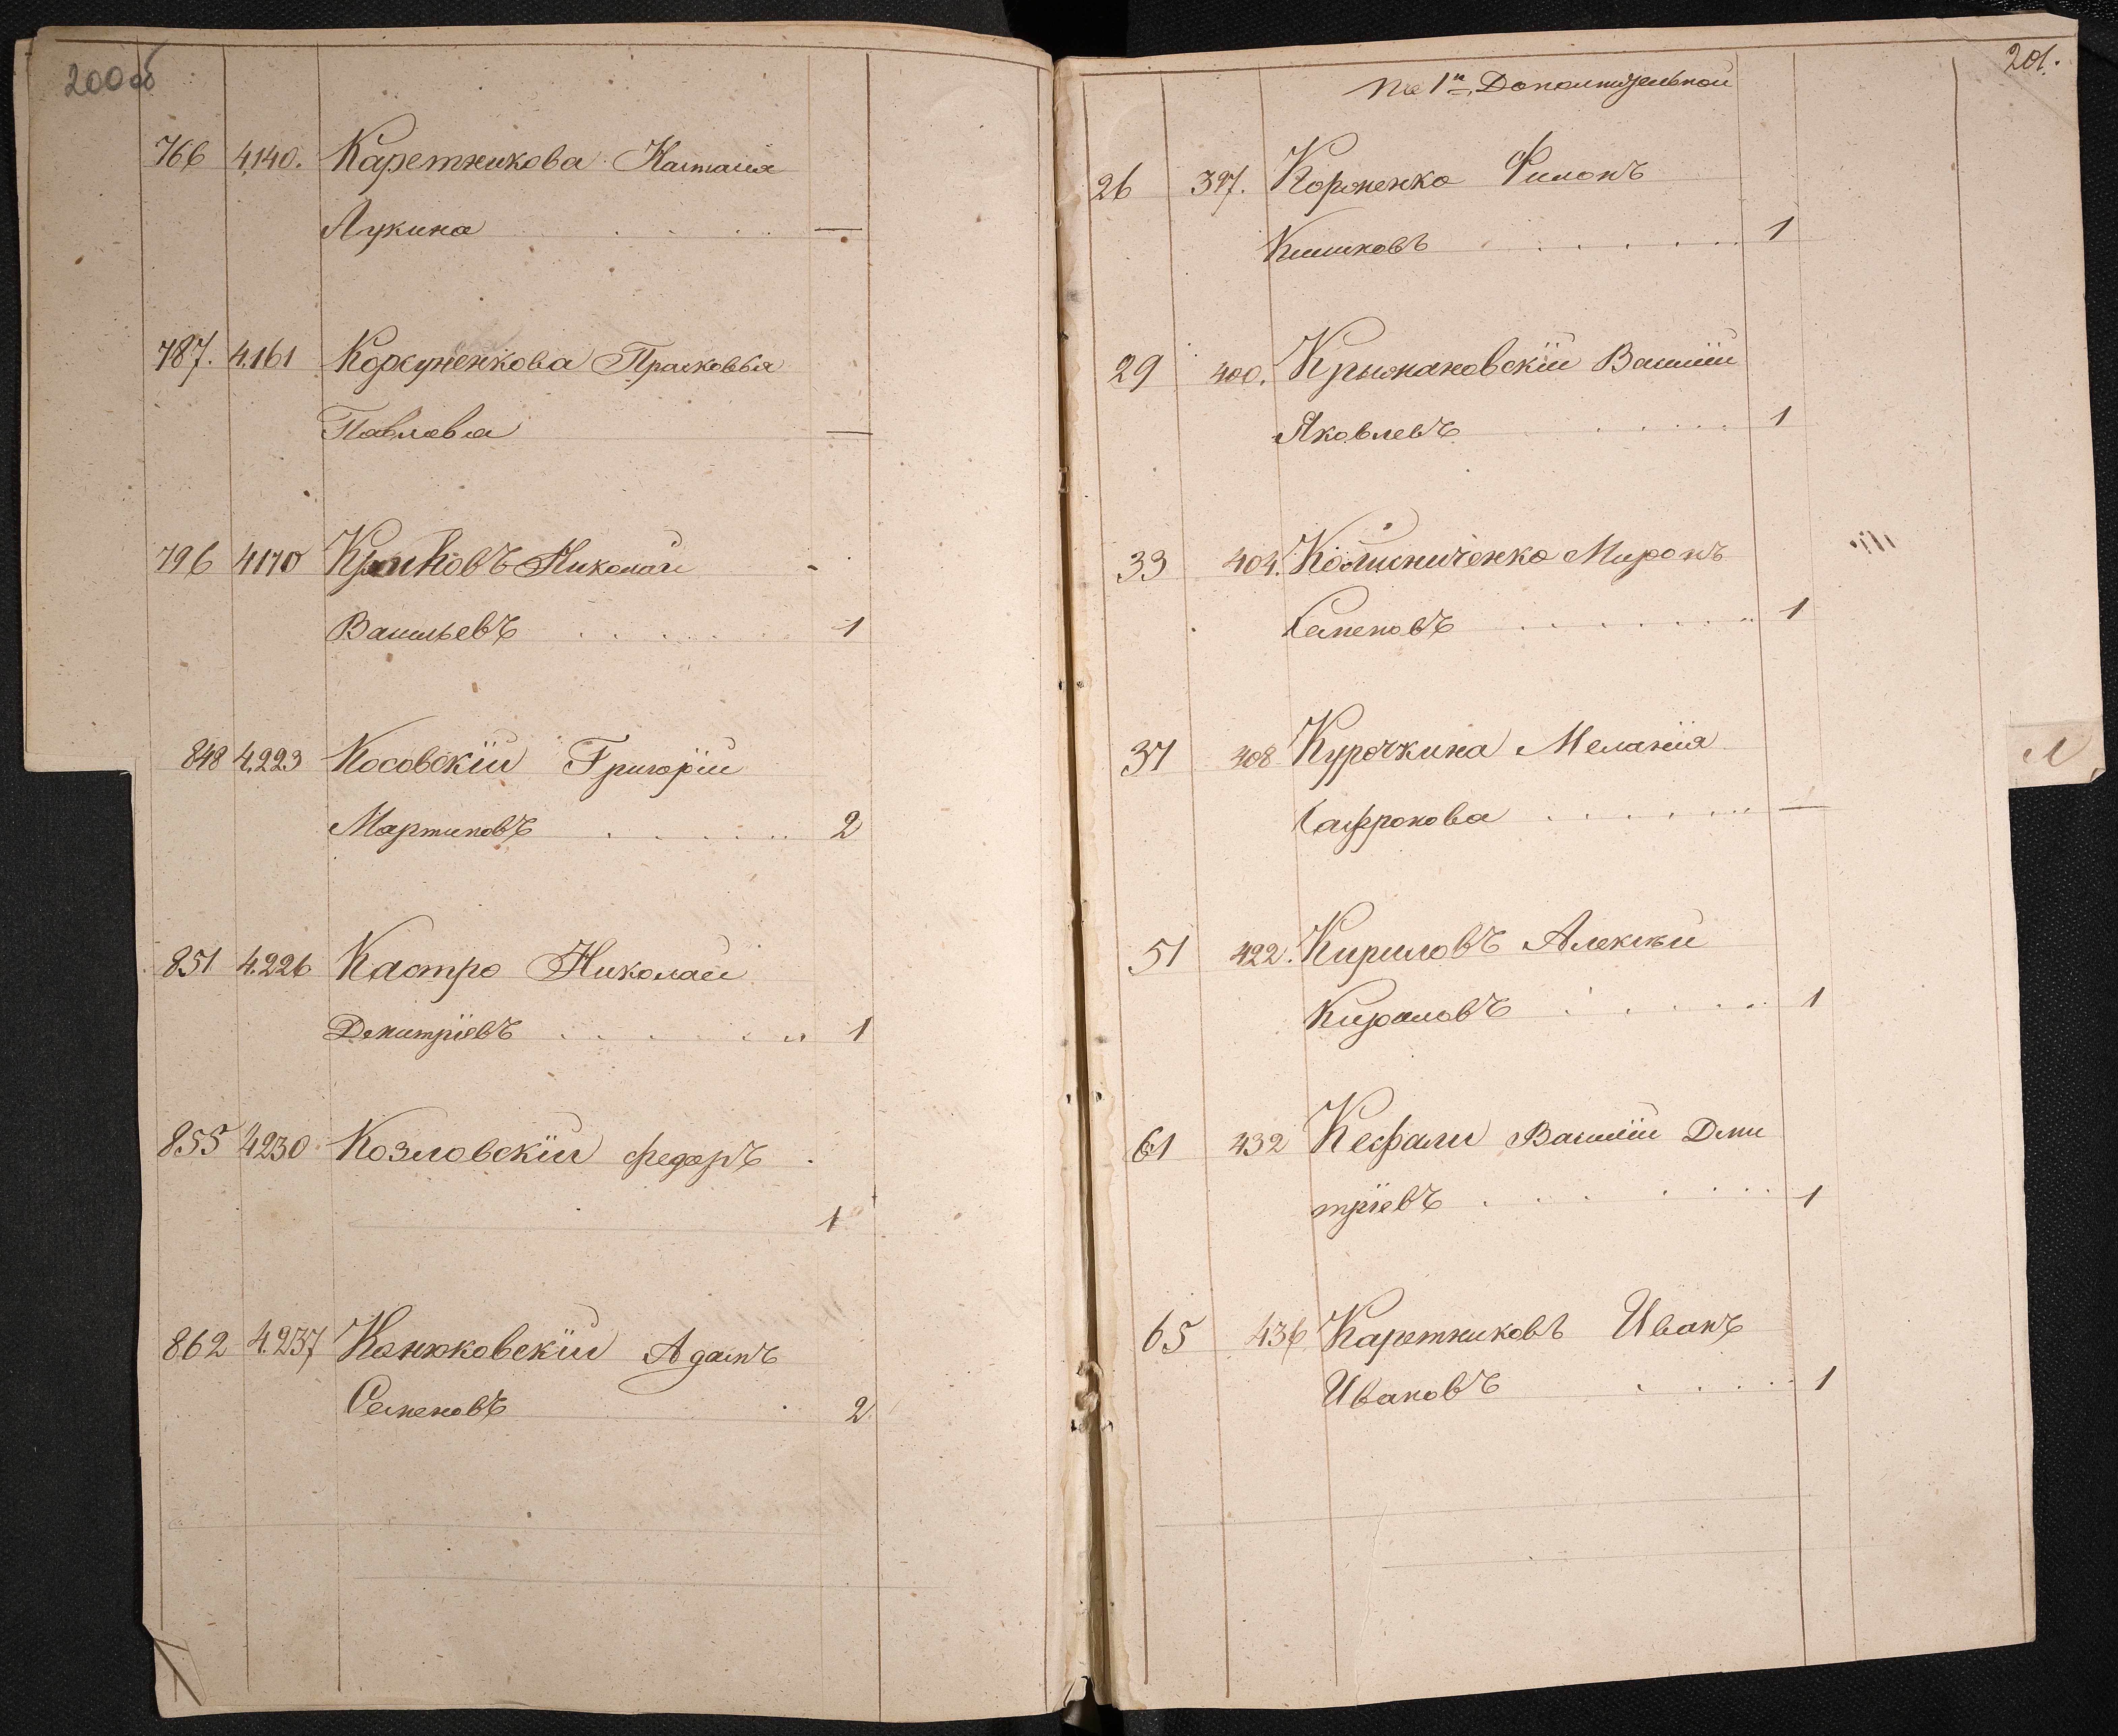 200об
766 4,140. Каретникова Наталія
Лукина —
787. 4.161 Коржуненкова Прасковья
Павлова —
796 4170 Николай
Васильевъ 1
848 4.223 Косовскій Григорій
Мартиновъ 2
851 4.226 Кастро Николай
Дмитріевъ 1
855 4230 Козловскій Федоръ
1
862 4.237 Канюковскій Адамъ
Семеновъ 2
201.
По 1й Дополнительной
26 397. Короненко Филонъ
1
29 400. Крыжановскій Василій
Яковлевъ 1
33 404. Колисниченко Миронъ
Семеновъ 1
37 408 Курочкина Меланія
Сафронова —
Л
51 422. Кириловъ Алексѣй
Кириловъ 1
61 432 Кефали Василій Дми
тріевъ 1
65 436 Каретниковъ Иванъ
Ивановъ 1